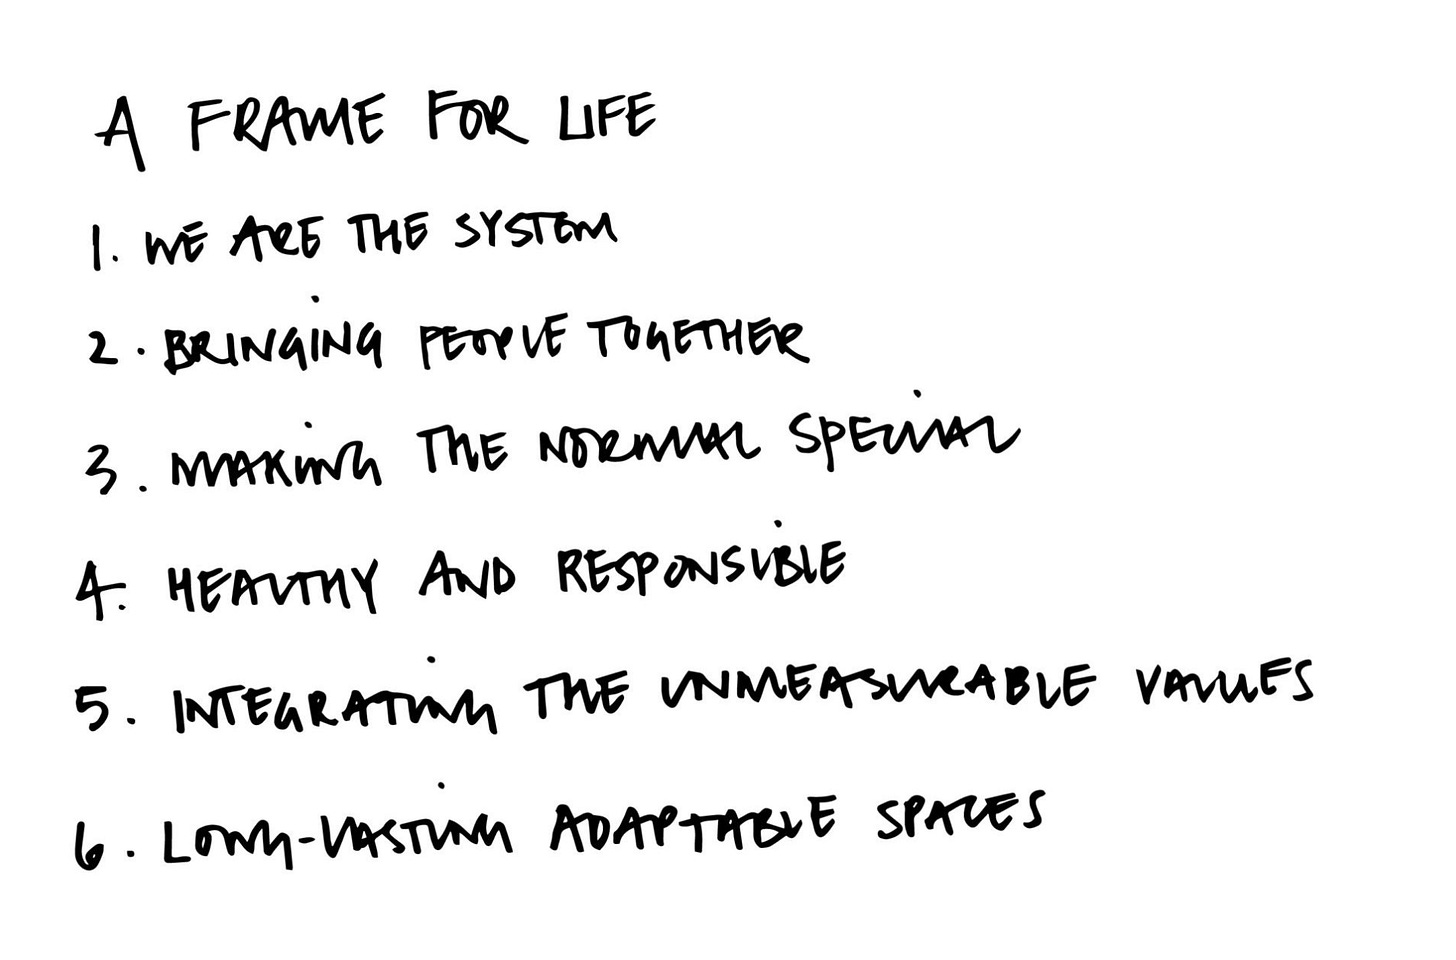 A FRAME FOR LIFE
1. WE ARE THE SYSTEM
2. BRINGING PEOPLE TOGETHER
3. MAKING THE NORMAL SPECIAL
4. HEALTHY AND RESPONSIBLE
5. INTEGRATING THE UNMEASURABLE VALUES
6. LONG-LASTING ADAPTABLE SPACES